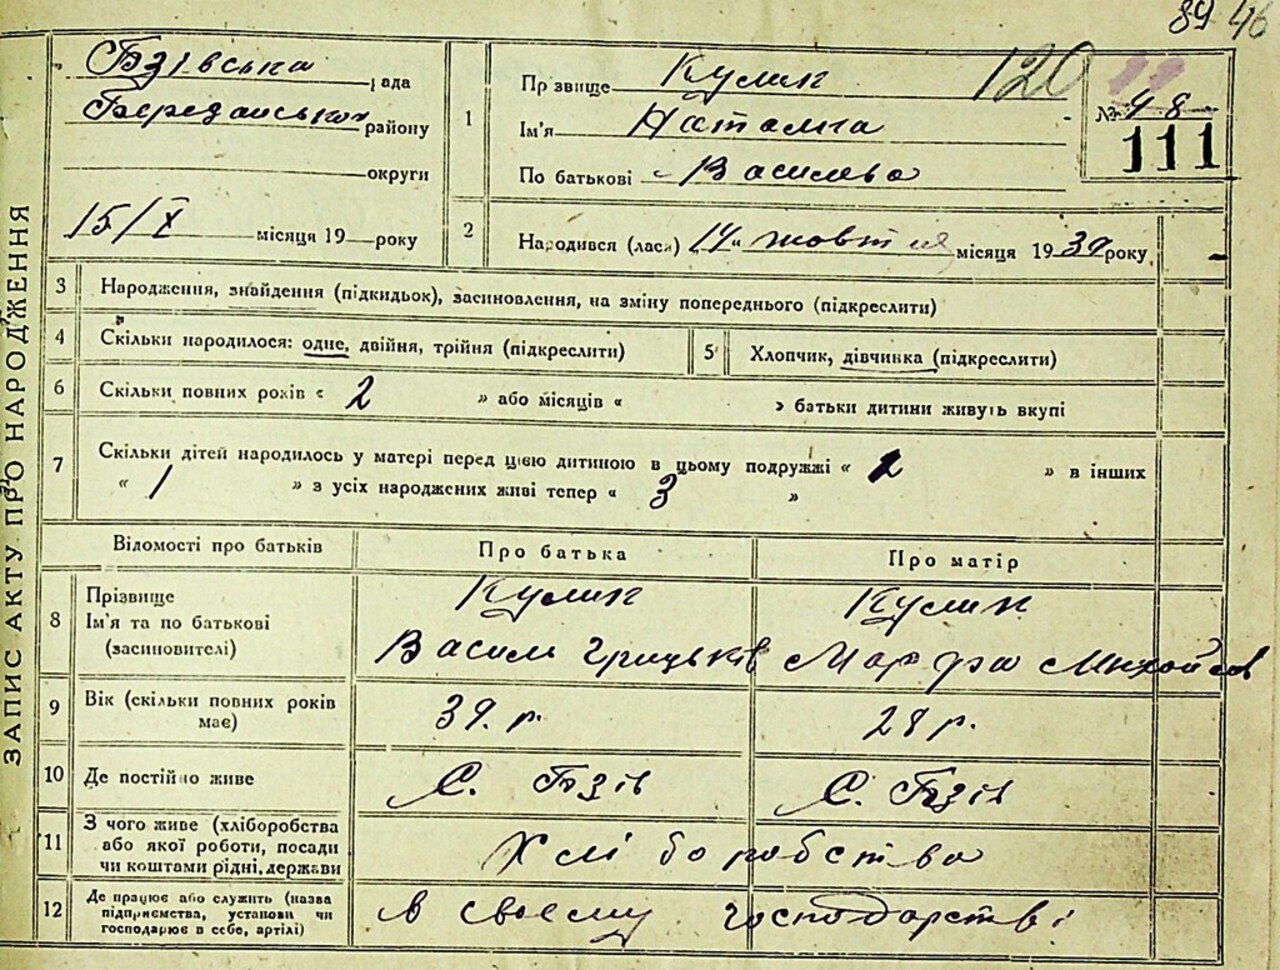 89 46
Бзівська рада
район у
округи
15/X місяця 19 року
ЗАПИС АКТУ ПРО НАРОДЖЕННЯ
1 Прізвище Кулик
Ім'я Наталка
По батькові Василева
120
№ 48
111
2 Народився (лася) 14 " жовтня місяця 1930 року
3 Народження, знайдення (підкидьок), засиновлення, на зміну попереднього (підкреслити)
4 Скільки народилося: одне, двійня, трійня (підкреслити)
5 Хлопчик, дівчинка (підкреслити)
6 Скільки повних років « 2 » або місяців « » батьки дитини живуть вкупі
7 Скільки дітей народилось у матері перед цією дитиною в цьому подружжі « » в інших
« 1 » з усіх народжених живі тепер « 3 »
Відомості про батьків Про батька Про матір
8 Прізвище
Ім'я та по батькові
(засиновителі)
Кулик
Василь Грицьків
Кулик
Марфа
9 Вік (скільки повних років
має)
39. р. 28 р.
10 Де постійно живе С. Бзів С. Бзів
11 З чого живе (хліборобства
або якої роботи, посади
чи коштами рідні, держави
Хліборобства
12 Де працює або служить (назва
підприємства, установи чи
господарює в себе, артілі)
в своєму господарстві